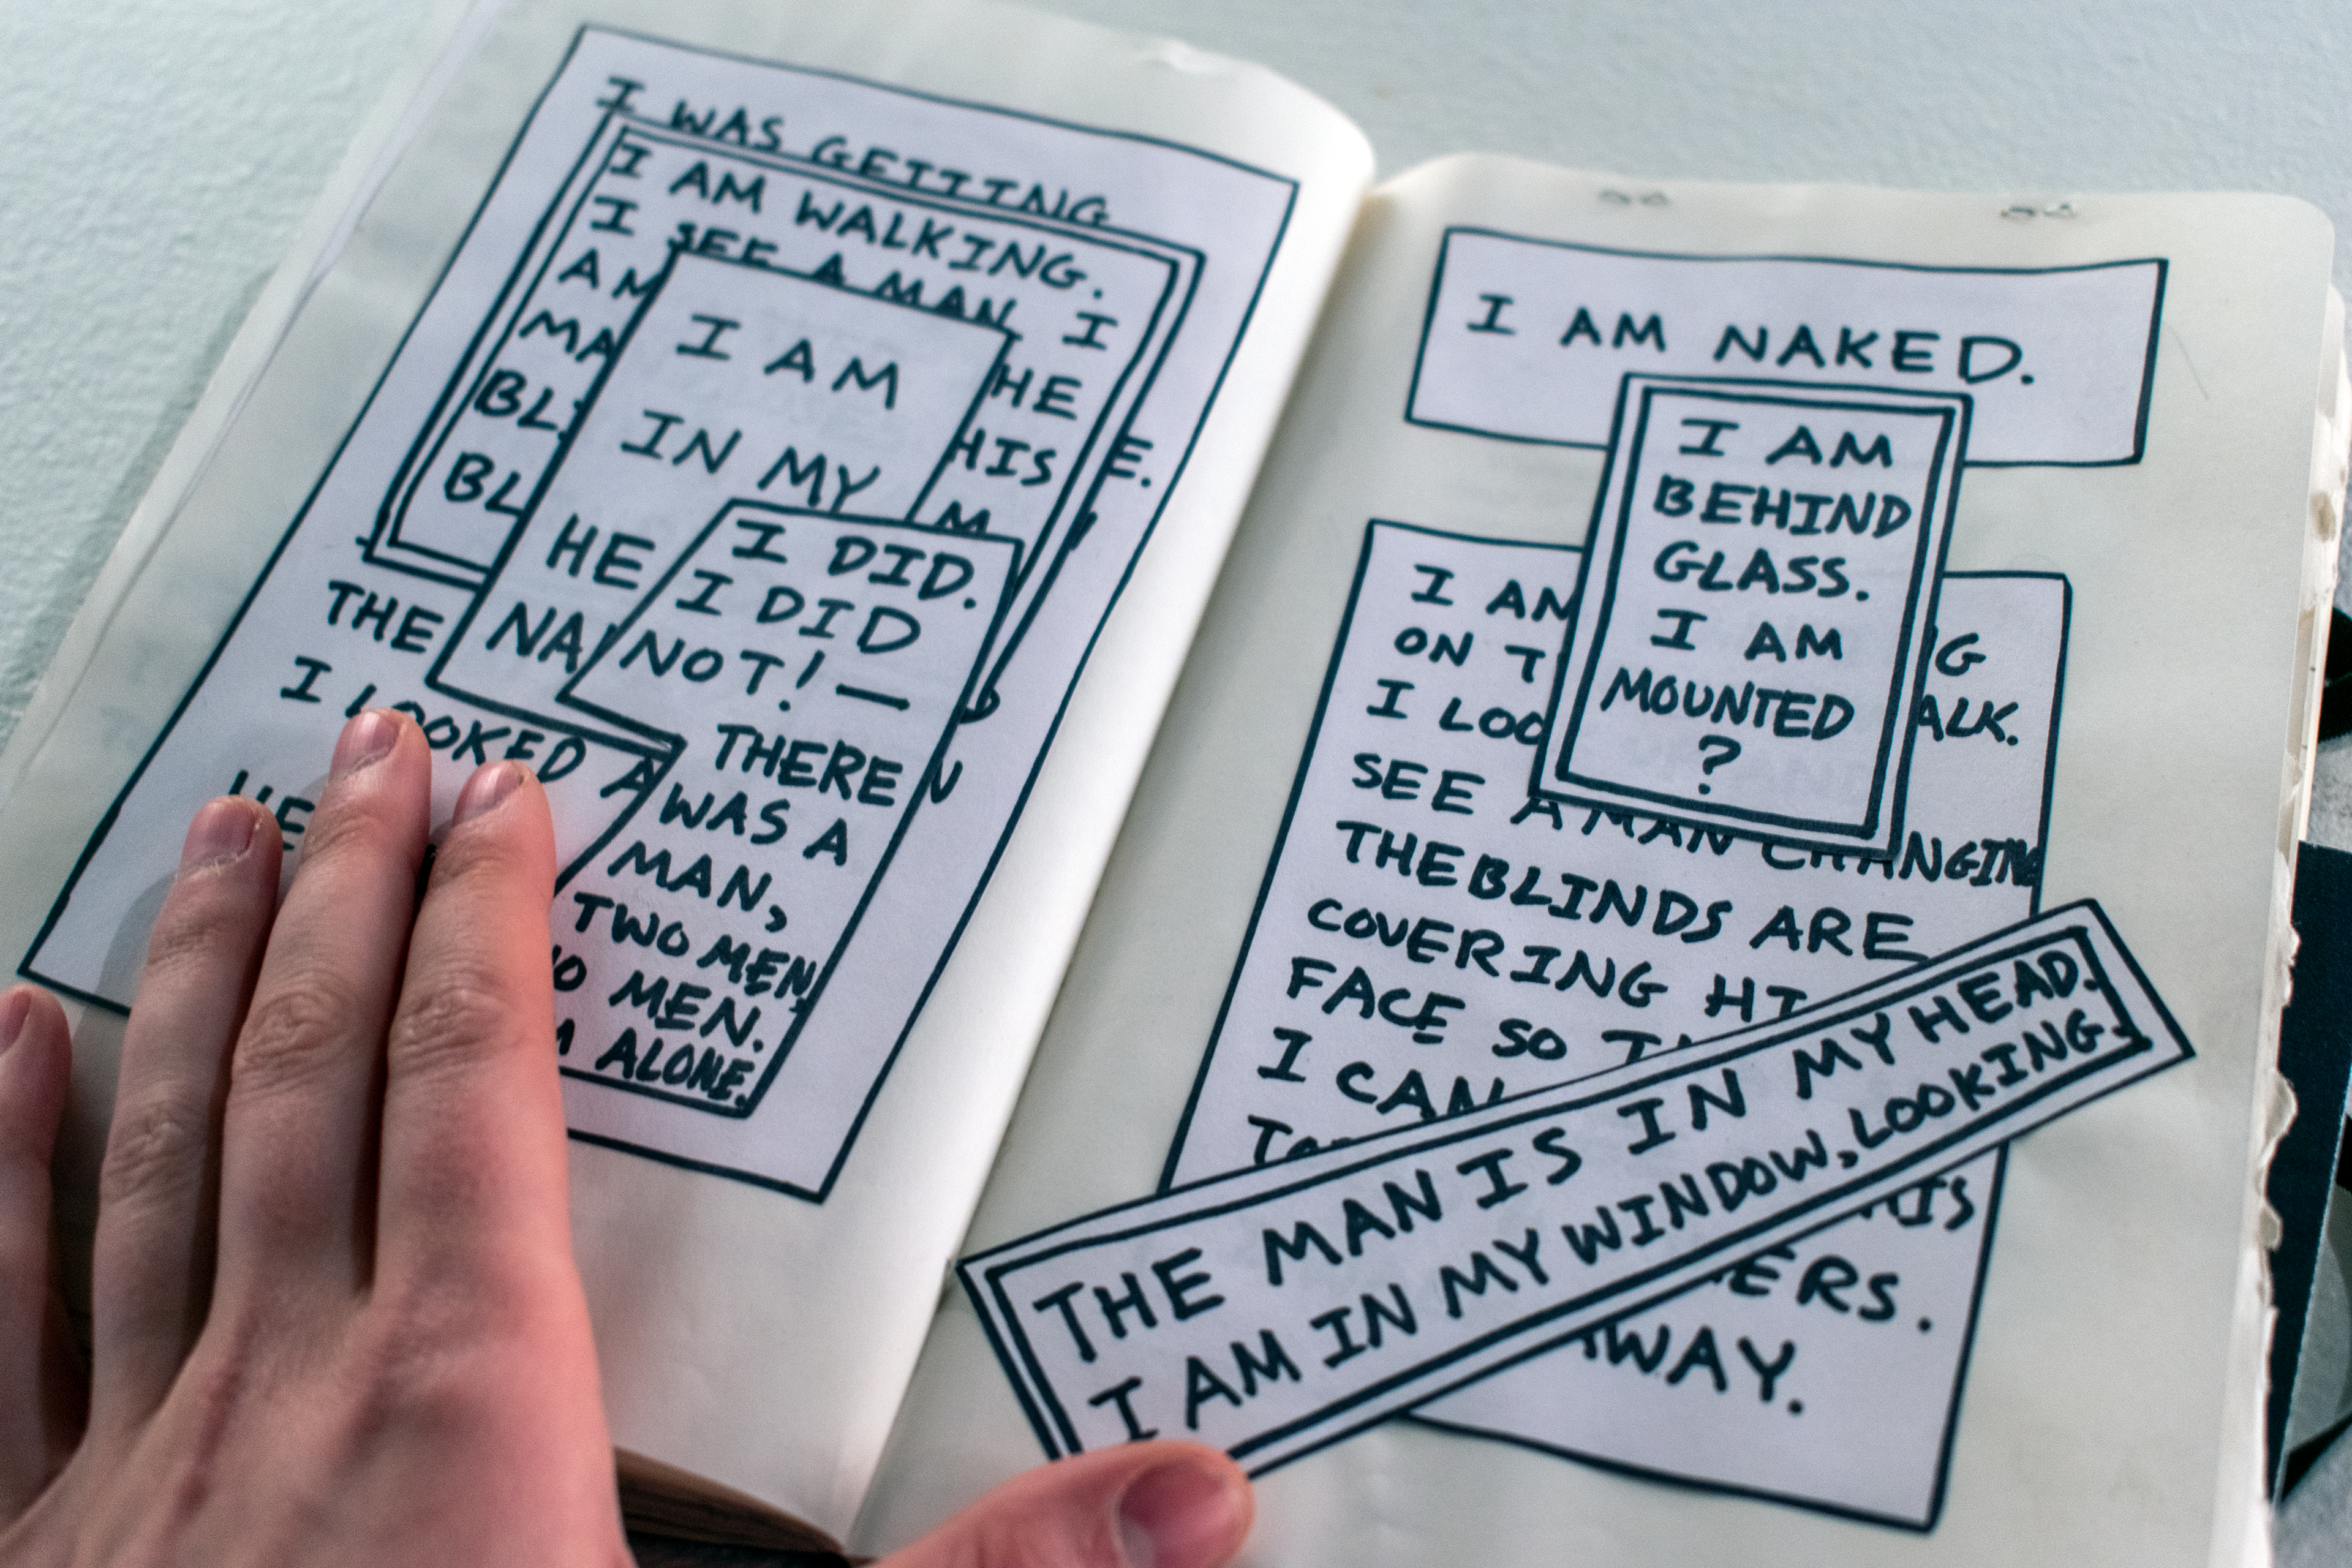 I WAS GETTING
I AM WALKING.
I SEE A MAN. I
AM HE
MA HIS
BL M
BL
E.
I AM
IN MY
HE
NA
I DID.
I DID
NOT! —
THERE
WAS A
MAN,
TWO MEN,
MEN.
ALONE.
THE
I LOOKED
HE
I AM NAKED.
I AM
BEHIND
GLASS.
I AM
MOUNTED
?
I AM G
ON T ALK.
I LOO
SEE A MAN CHANGING
THE BLINDS ARE
COVERING HI
FACE SO
I CAN
HIS
ERS.
AWAY.
THE MAN IS IN MY HEAD.
I AM IN MY WINDOW, LOOKING.